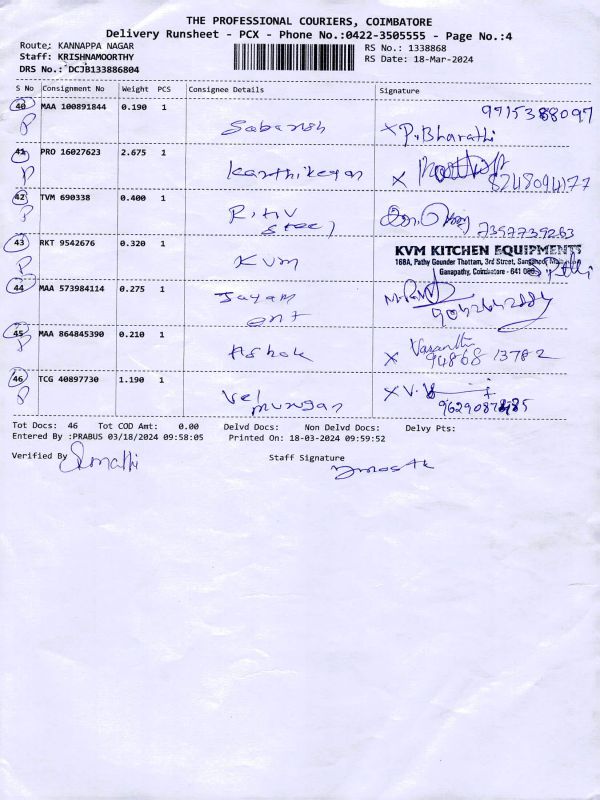 THE PROFESSIONAL COURIERS, COIMBATORE
Delivery Runsheet - PCX - Phone No.:0422-3505555 - Page No.:4
Route: KANNAPPA NAGAR
Staff: KRISHNAMOORTHY
DRS No.: DCJB133886804
RS No.: 1338868
RS Date: 18-Mar-2024
S No Consignment No Weight PCS Consignee Details Signature
40 MAA 100891844 0.190 1 Sabarish X P. Bharathi 9715388097
41 PRO 16027623 2.675 1 Karthikeyan X 8248094177
42 TVM 690338 0.400 1 Rithv Steel 7397739263
43 RKT 9542676 0.320 1 KVM
KVM KITCHEN EQUIPMENTS
168A, Pathy Gounder Thottam, 3rd Street,
Ganapathy, Coimbatore - 641 006
44 MAA 573984114 0.275 1 Jayam ent
45 MAA 864845390 0.210 1 Ashok X Vasanthi 94868 13782
46 TCG 40897730 1.190 1 Vel murugan X V.
Tot Docs: 46 Tot COD Amt: 0.00 Delvd Docs: Non Delvd Docs: Delvy Pts:
Entered By :PRABUS 03/18/2024 09:58:05 Printed On: 18-03-2024 09:59:52
Verified By Staff Signature